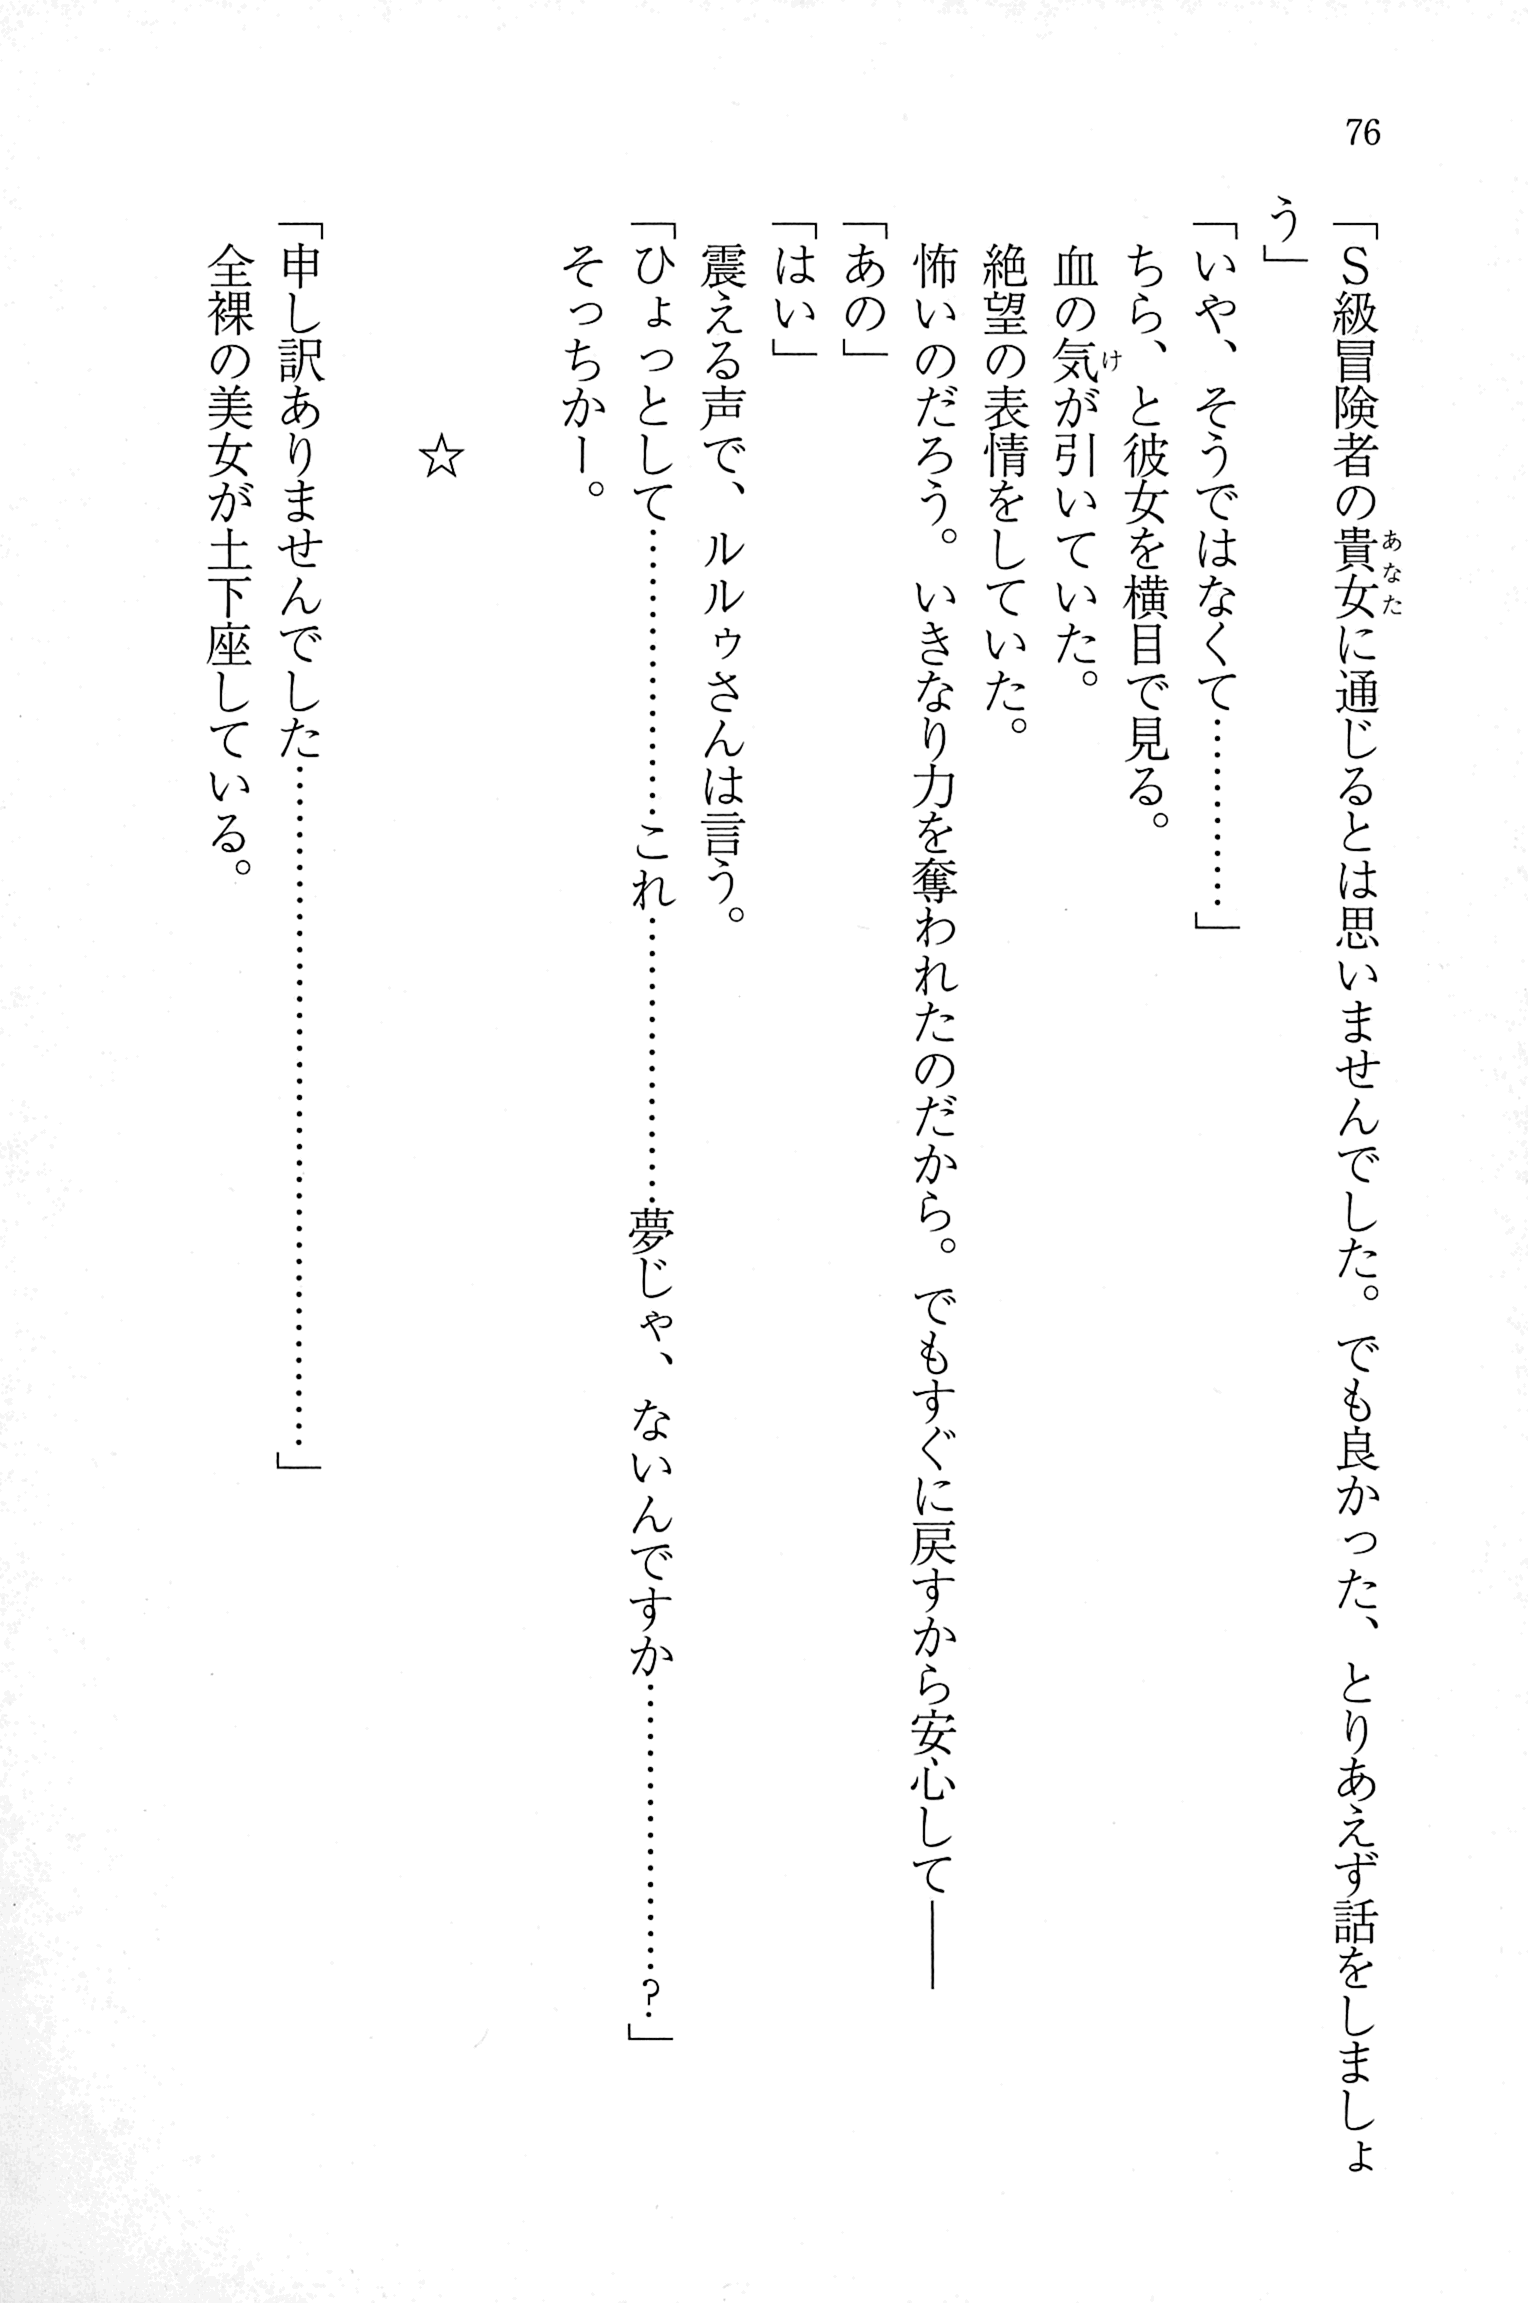 76
「Ｓ級冒険者の貴女に通じるとは思いませんでした。でも良かった、とりあえず話をしましょ
あなた
う」
「いや、そうではなくて…………」
ちら、と彼女を横目で見る。
血の気が引いていた。
け
絶望の表情をしていた。
怖いのだろう。いきなり力を奪われたのだから。でもすぐに戻すから安心して――
「あの」
「はい」
震える声で、ルルゥさんは言う。
「ひょっとして………………これ………………夢じゃ、ないんですか………………？」
そっちかー。
☆
「申し訳ありませんでした………………………………………」
全裸の美女が土下座している。